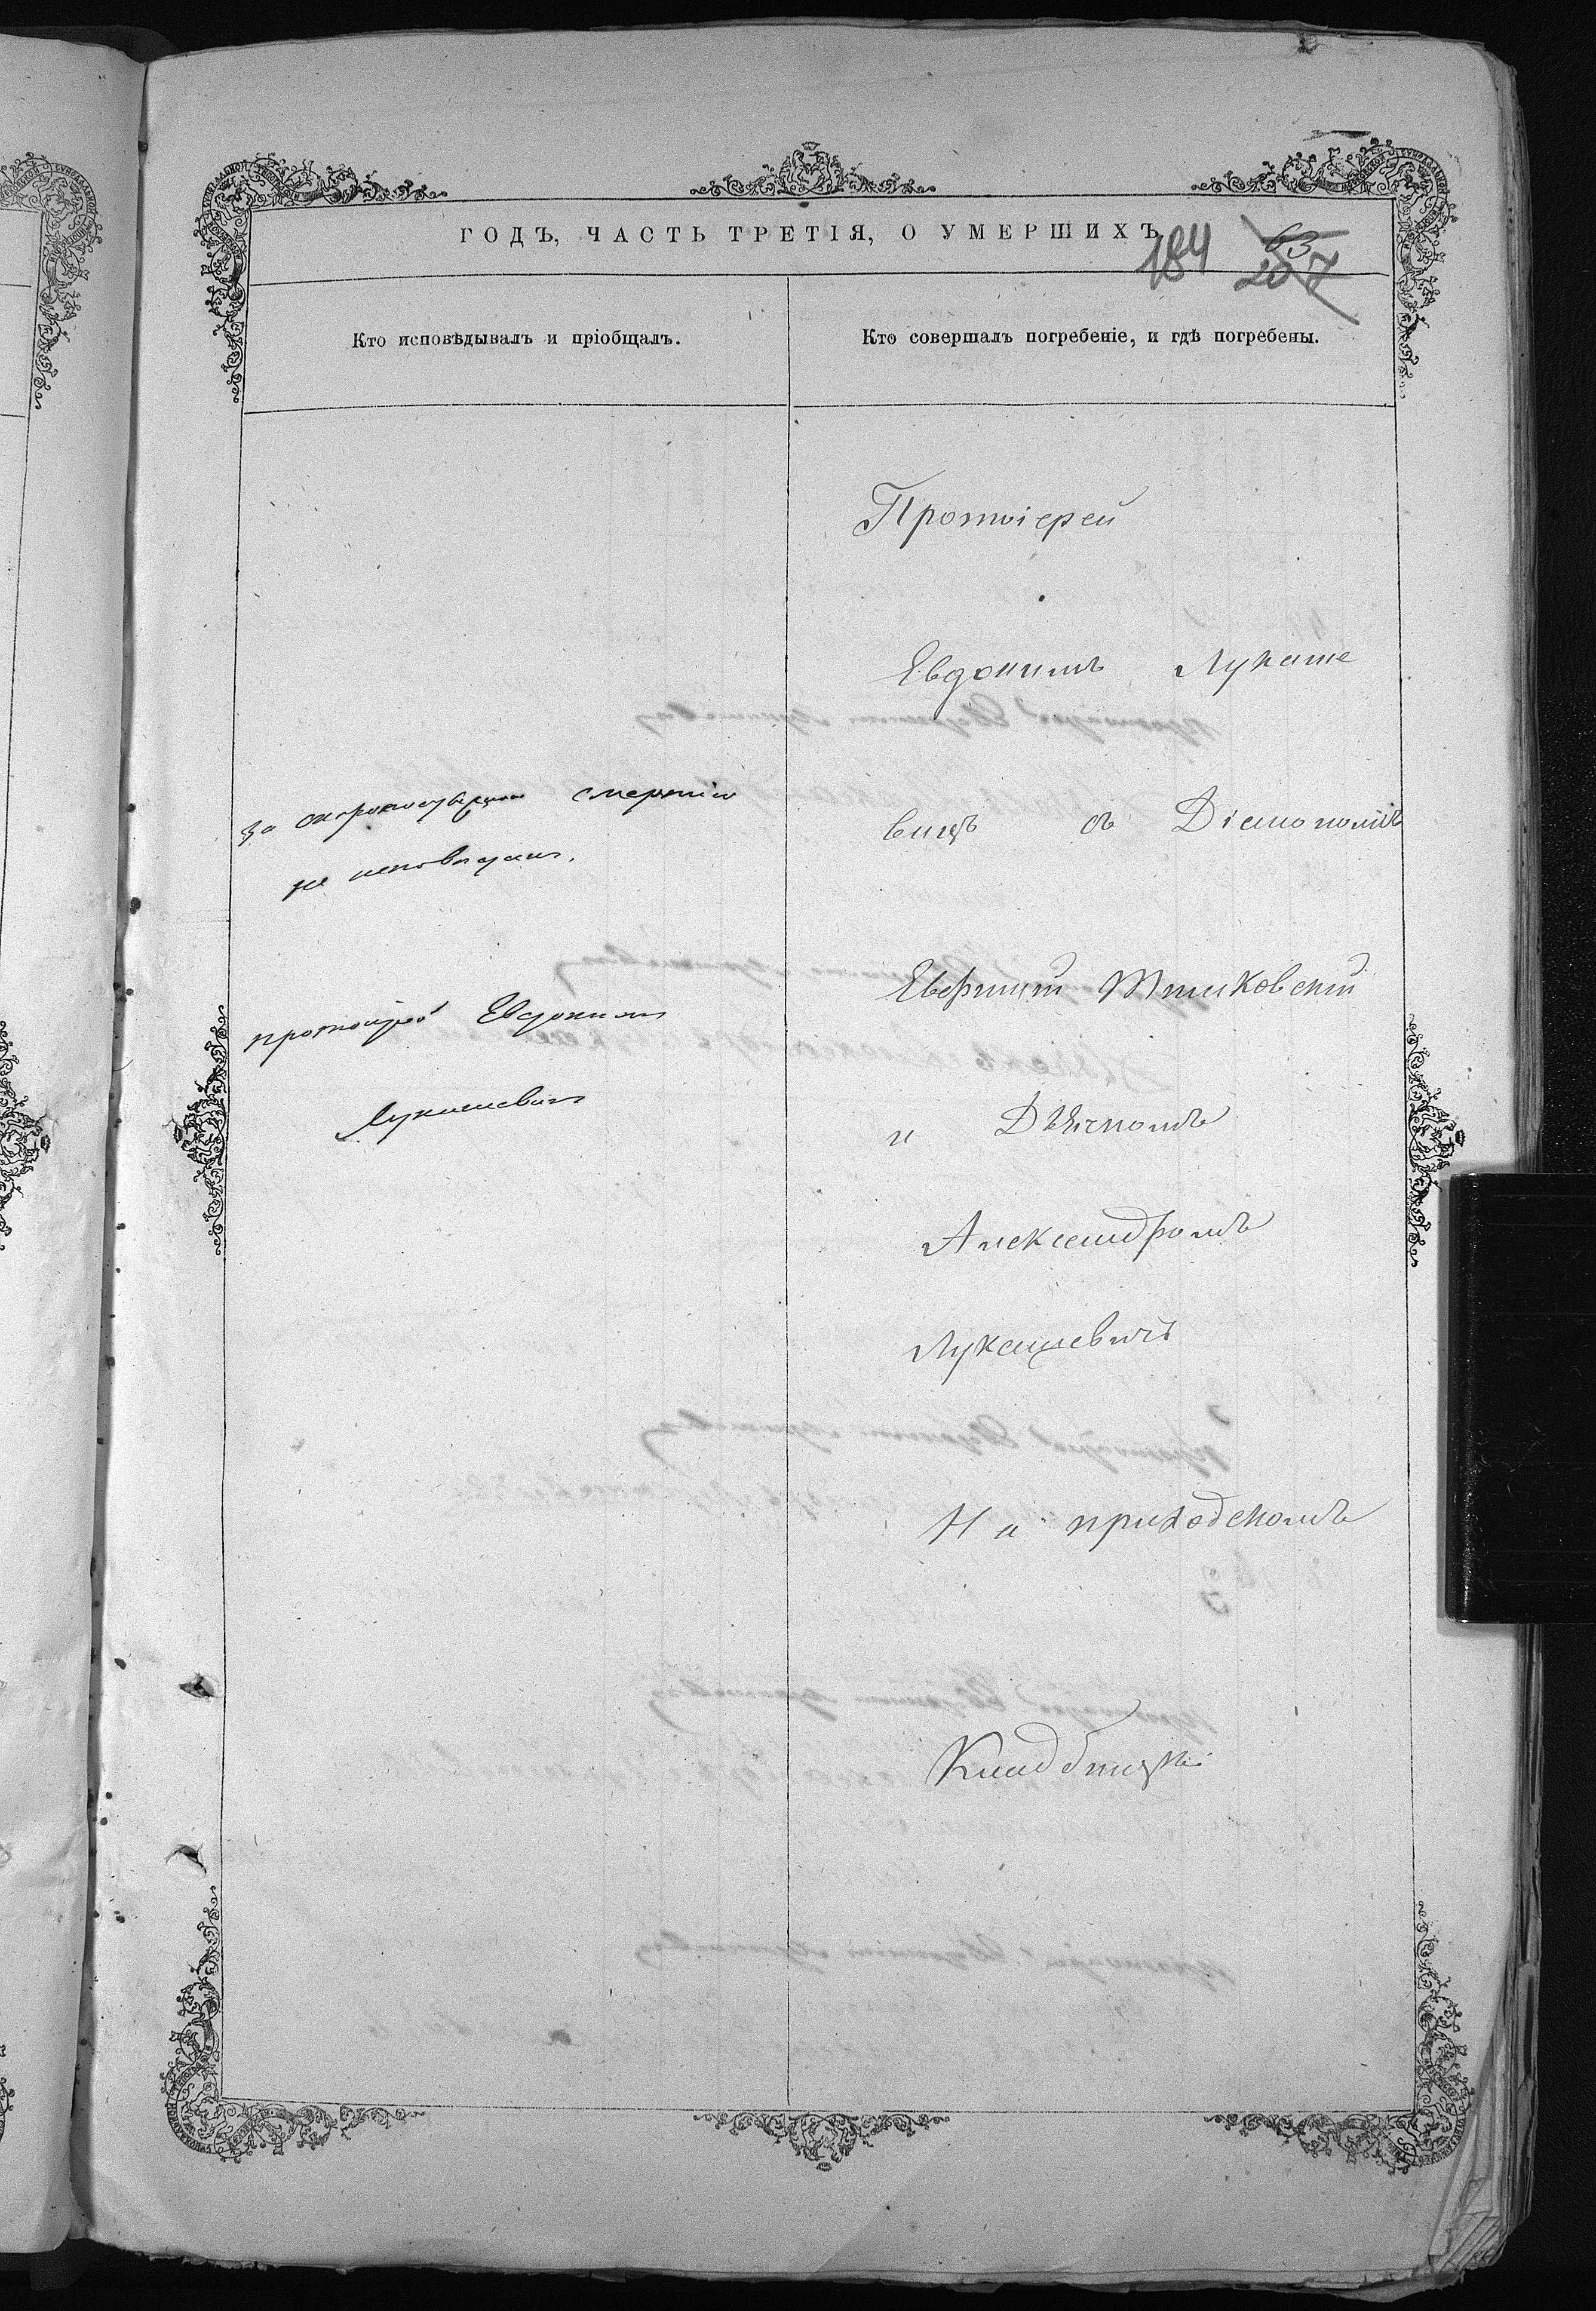 ГОДЪ, ЧАСТЬ ТРЕТІЯ, О УМЕРШИХЪ
184
63
207
Кто исповѣдывалъ и пріобщалъ.
Кто совершалъ погребеніе, и гдѣ погребены.
за скоропостижною смертію
не исповѣдан.
протоіерей Евдокимъ
Лукашевичъ
Протоіерей
Евдокимъ Лукаше
вичъ съ Діакономъ
и Дьячкомъ
Александромъ
Лукашевичъ
На приходскомъ
Кладбищѣ